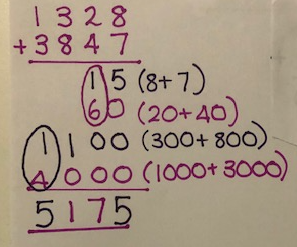 1328
+3847
15 (8+7)
60 (20+40)
1100 (300+800)
4000 (1000+3000)
5175